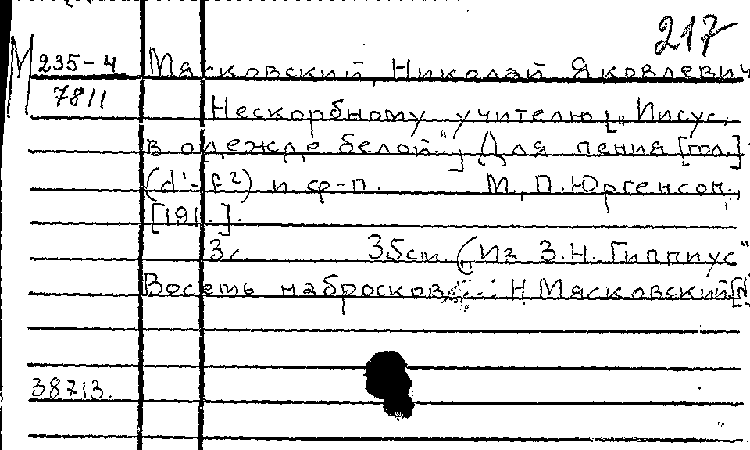 217
М 235-4 Мясковский, Николай Яковлевич
7811 Нескорбному учителю [„Иисус,
в одежде белой"] Для пения [гол.]
(d¹-f²) и ф-п. М., П. Юргенсон,
[191.].
3с. 35см. (Из З.Н. Гиппиус"
Восемь набросков Н. Мясковский [N
38713.